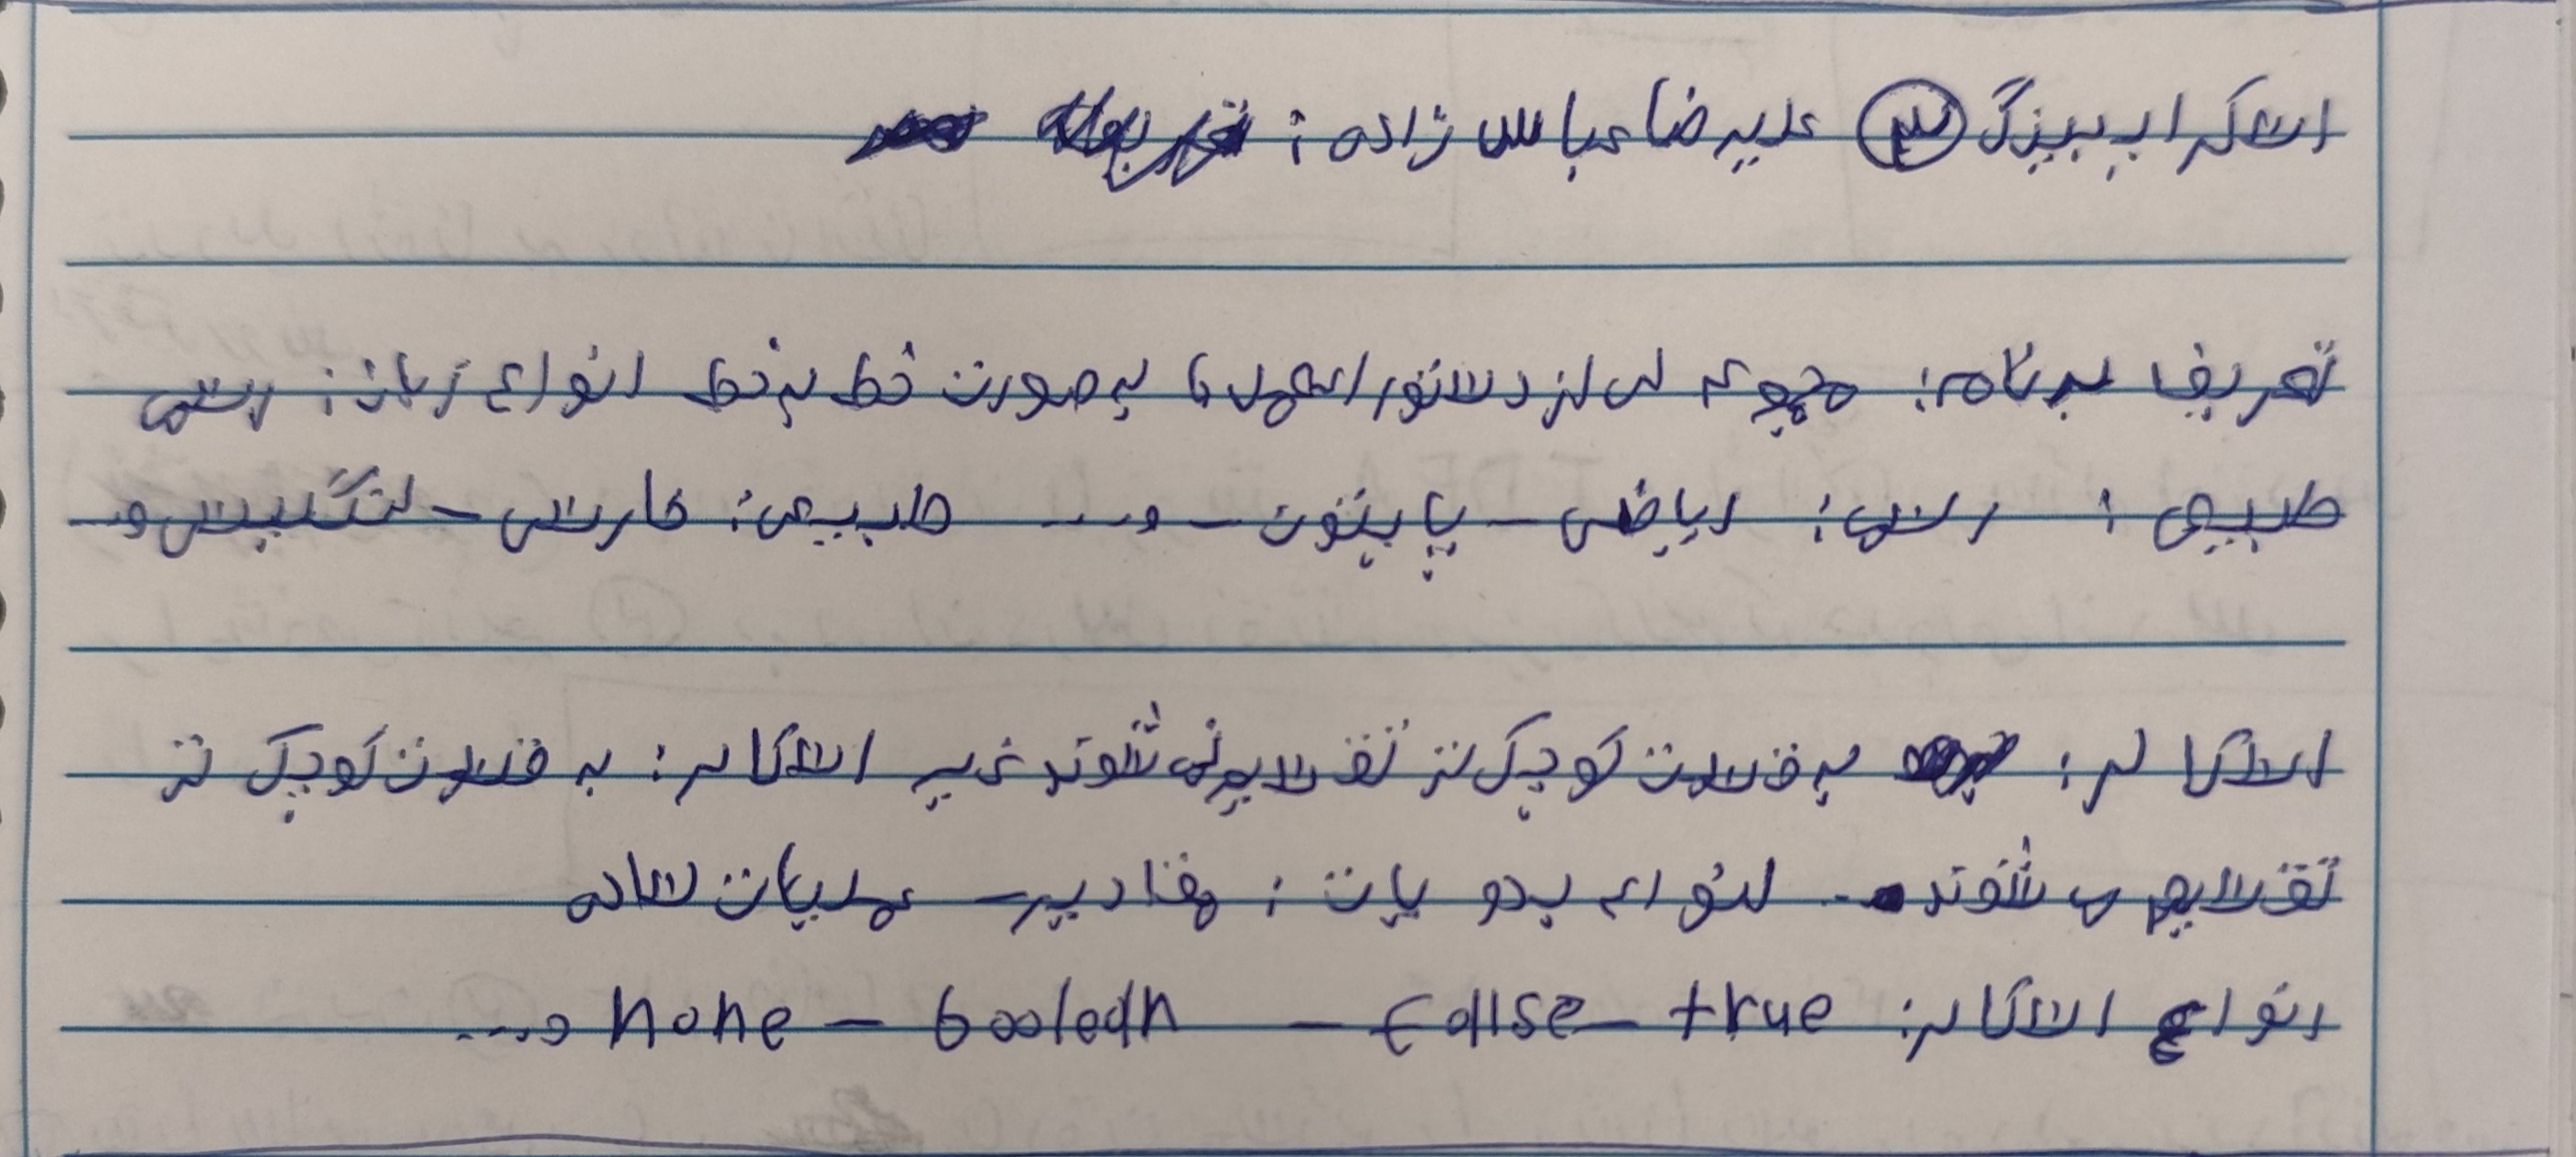 اسکراپ بیزگ ۳ علیرضا عباس زاده:
تعریف برنامه: مجموعه ای از دستورالعمل ها به صورت خط به خط انواع زبان: رسمی
طبیعی: رسمی: ریاضی - پایتون - و... طبیعی: فارسی - انگلیسی و...
اسکالر: به قسمت کوچک تر تقسیم نمی شوند غیر اسکالر: به قسمت کوچک تر
تقسیم می شوند. انواع یدو یات: مقادیر - عملیات ساده
انواع اسکالر: true - fallse - boolean - none و...